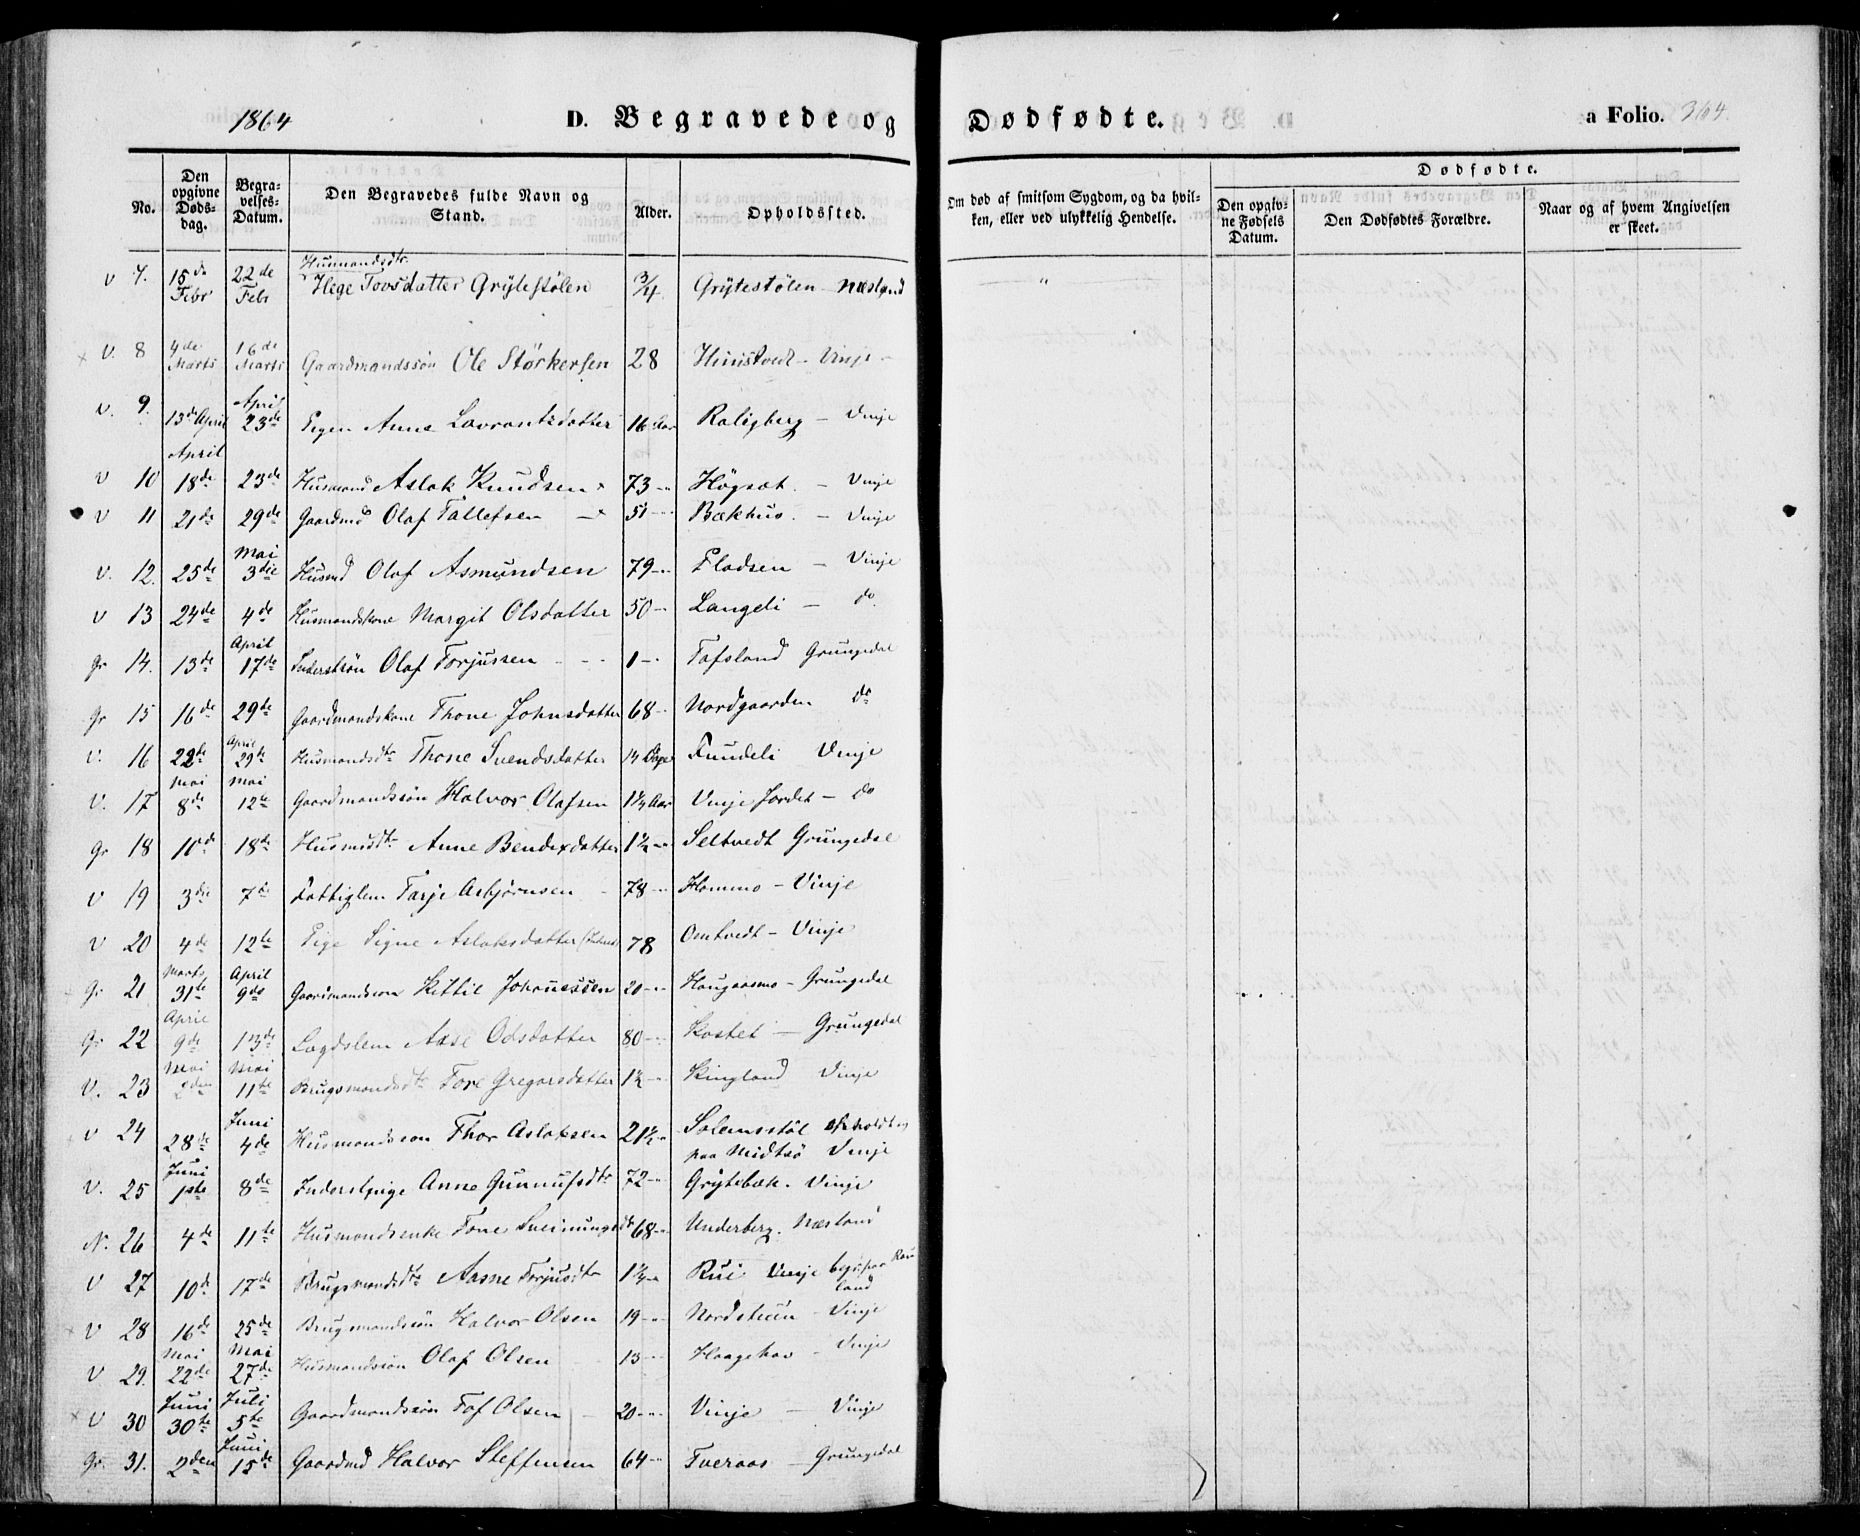 1864
D. Begravede og Dødfødte.
a Folio. 364.
No.
Den opgivne Døds-dag.
Begra-velses-Datum.
Den Begravedes fulde Navn og Stand.
Alder.
Opholdssted.
Om død af smitsom Sygdom, og da hvil-ken, eller ved ulykkelig Hendelse.
Dødfødte.
Den opgiv-ne Fødsels Datum.
Den Dødfødtes Forældre.
Naar og af hvem Angivelsen er skeet.
V 7. 15de Febr 22de Febr Husmandsdtr. Hege Tovsdatter Grytestølen 3/4 Grytestølen – Næsland "
V. 8 4de Marts 16de Marts Gaardmandssøn Ole Størkersen 28 – Vinje –
V. 9. 13de April April 23de Pigen Anne Lavrantsdatter 16 Aar Raligberg – Vinje
V 10 April 18de 23de Husmand Aslak Knudsen 73 –"– Høgsæt. – Vinje
V 11 21de 29de Gaardmd Olaf Tallefsen 51 –"– Bækhus. – Vinje
V. 12. 25de Mai 3die Husmd Olaf Asmundsen 79 –"– Flodsen – Vinje
V 13 24de 4de Husmandskone Margit Olsdatter 50 –"– Langeli – do.
Gr 14. 13de April 17de Inderstsøn Olaf Torjussen 1 –"– Tofsland Grungedal
Gr 15 16de 29de Gaardmandskone Thone Johnsdatter 68 –"– Nordgaarden do
V. 16 22de April 29de Husmandsdtr Thone Svendsdatter 14 Dage Fundeli Vinje
V. 17 Mai 8de Mai 12te Gaardmandssøn Halvor Olafsen 1 1/4 Aar Vinje Jordet – do
Gr 18 10de 18de Husmsdtr Anne Bendixdatter 1 1/2 –"– Seltvedt Grungedal
V 19 3die 7de Fattiglem Tarje Asbjørnsen 78 –"– Hommo – Vinje
V 20 4de 12te Pige Signe Aslaksdatter 78 Omtvedt – Vinje
Gr 21 Marts 31te April 9de Gaardmandsson Kittil Johnessen 20 –"– Haugaasmo – Grungedal
Gr 22 April 9de 13de Lægdslem Aase Odsdatter 80 –"– Kostet – Grungedal
V. 23 Mai 2den Mai 11te Brugsmandsdtr Tore Gregarsdatter 1 1/2 –"– Kingland Vinje
V 24 28de Juni 4de Husmandsson Thor Aslaksen 21 1/2 –"– Solemsstøl
paa Midtsø Vinje
V. 25 Juni 1ste 8de Inderstpige Anne Gunnufsdtr 72 –"– Grytebæk. Vinje
N. 26 4de 11te Husmandsenke Tone Sveinungsdtr 68 –"– Underberg. Næsland
V 27 10de 17de Brugsmandsdtr Aasne Torjusdtr 1 1/2 –"– Rui Vinje begr. paa Rau
land
V 28 16de 25de Brugsmandssøn Halvor Olsen 19 –"– – Vinje
V 29. Mai 22de Mai 27de Husmandssøn Olaf Olsen 13 –"– Haagehav – Vinje
V 30 Juni 30te Juli 5te Gaardmandssøn Tof Olsen 20 –"– Vinje – Vinje
Gr. 31. 2den Juni 15de Gaardmd Halvor Steffensen 64 –"– Tveraas – Grungedal